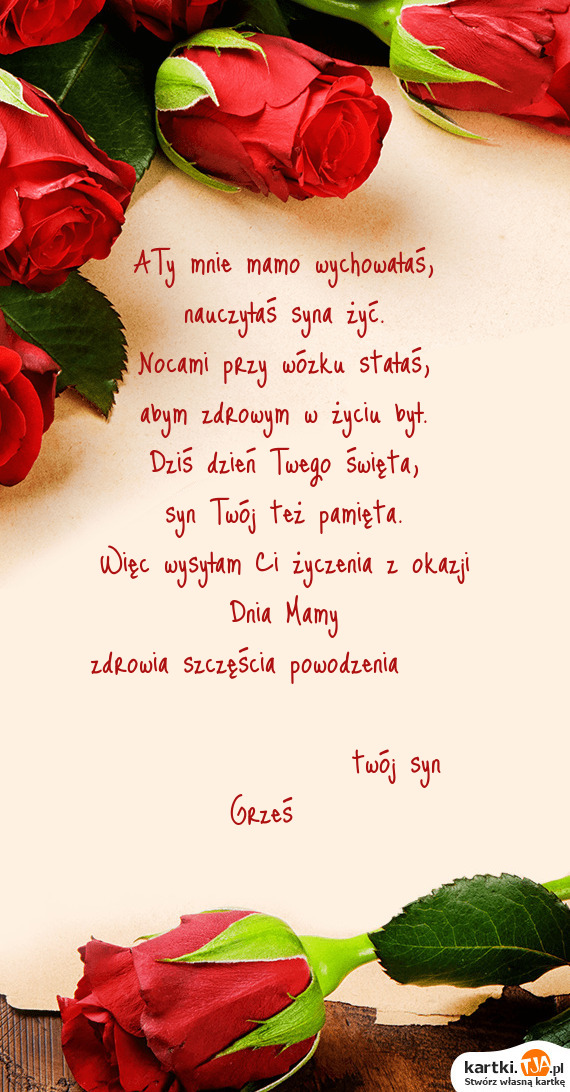 ATy mnie mamo wychowałaś,
nauczyłaś syna żyć.
Nocami przy wózku stałaś,
abym zdrowym w życiu był.
Dziś dzień Twego święta,
syn Twój też pamięta.
Więc wysyłam Ci życzenia z okazji
Dnia Mamy
zdrowia szczęścia powodzenia
twój syn
Grześ
kartki.TJA.pl
Stwórz własną kartkę